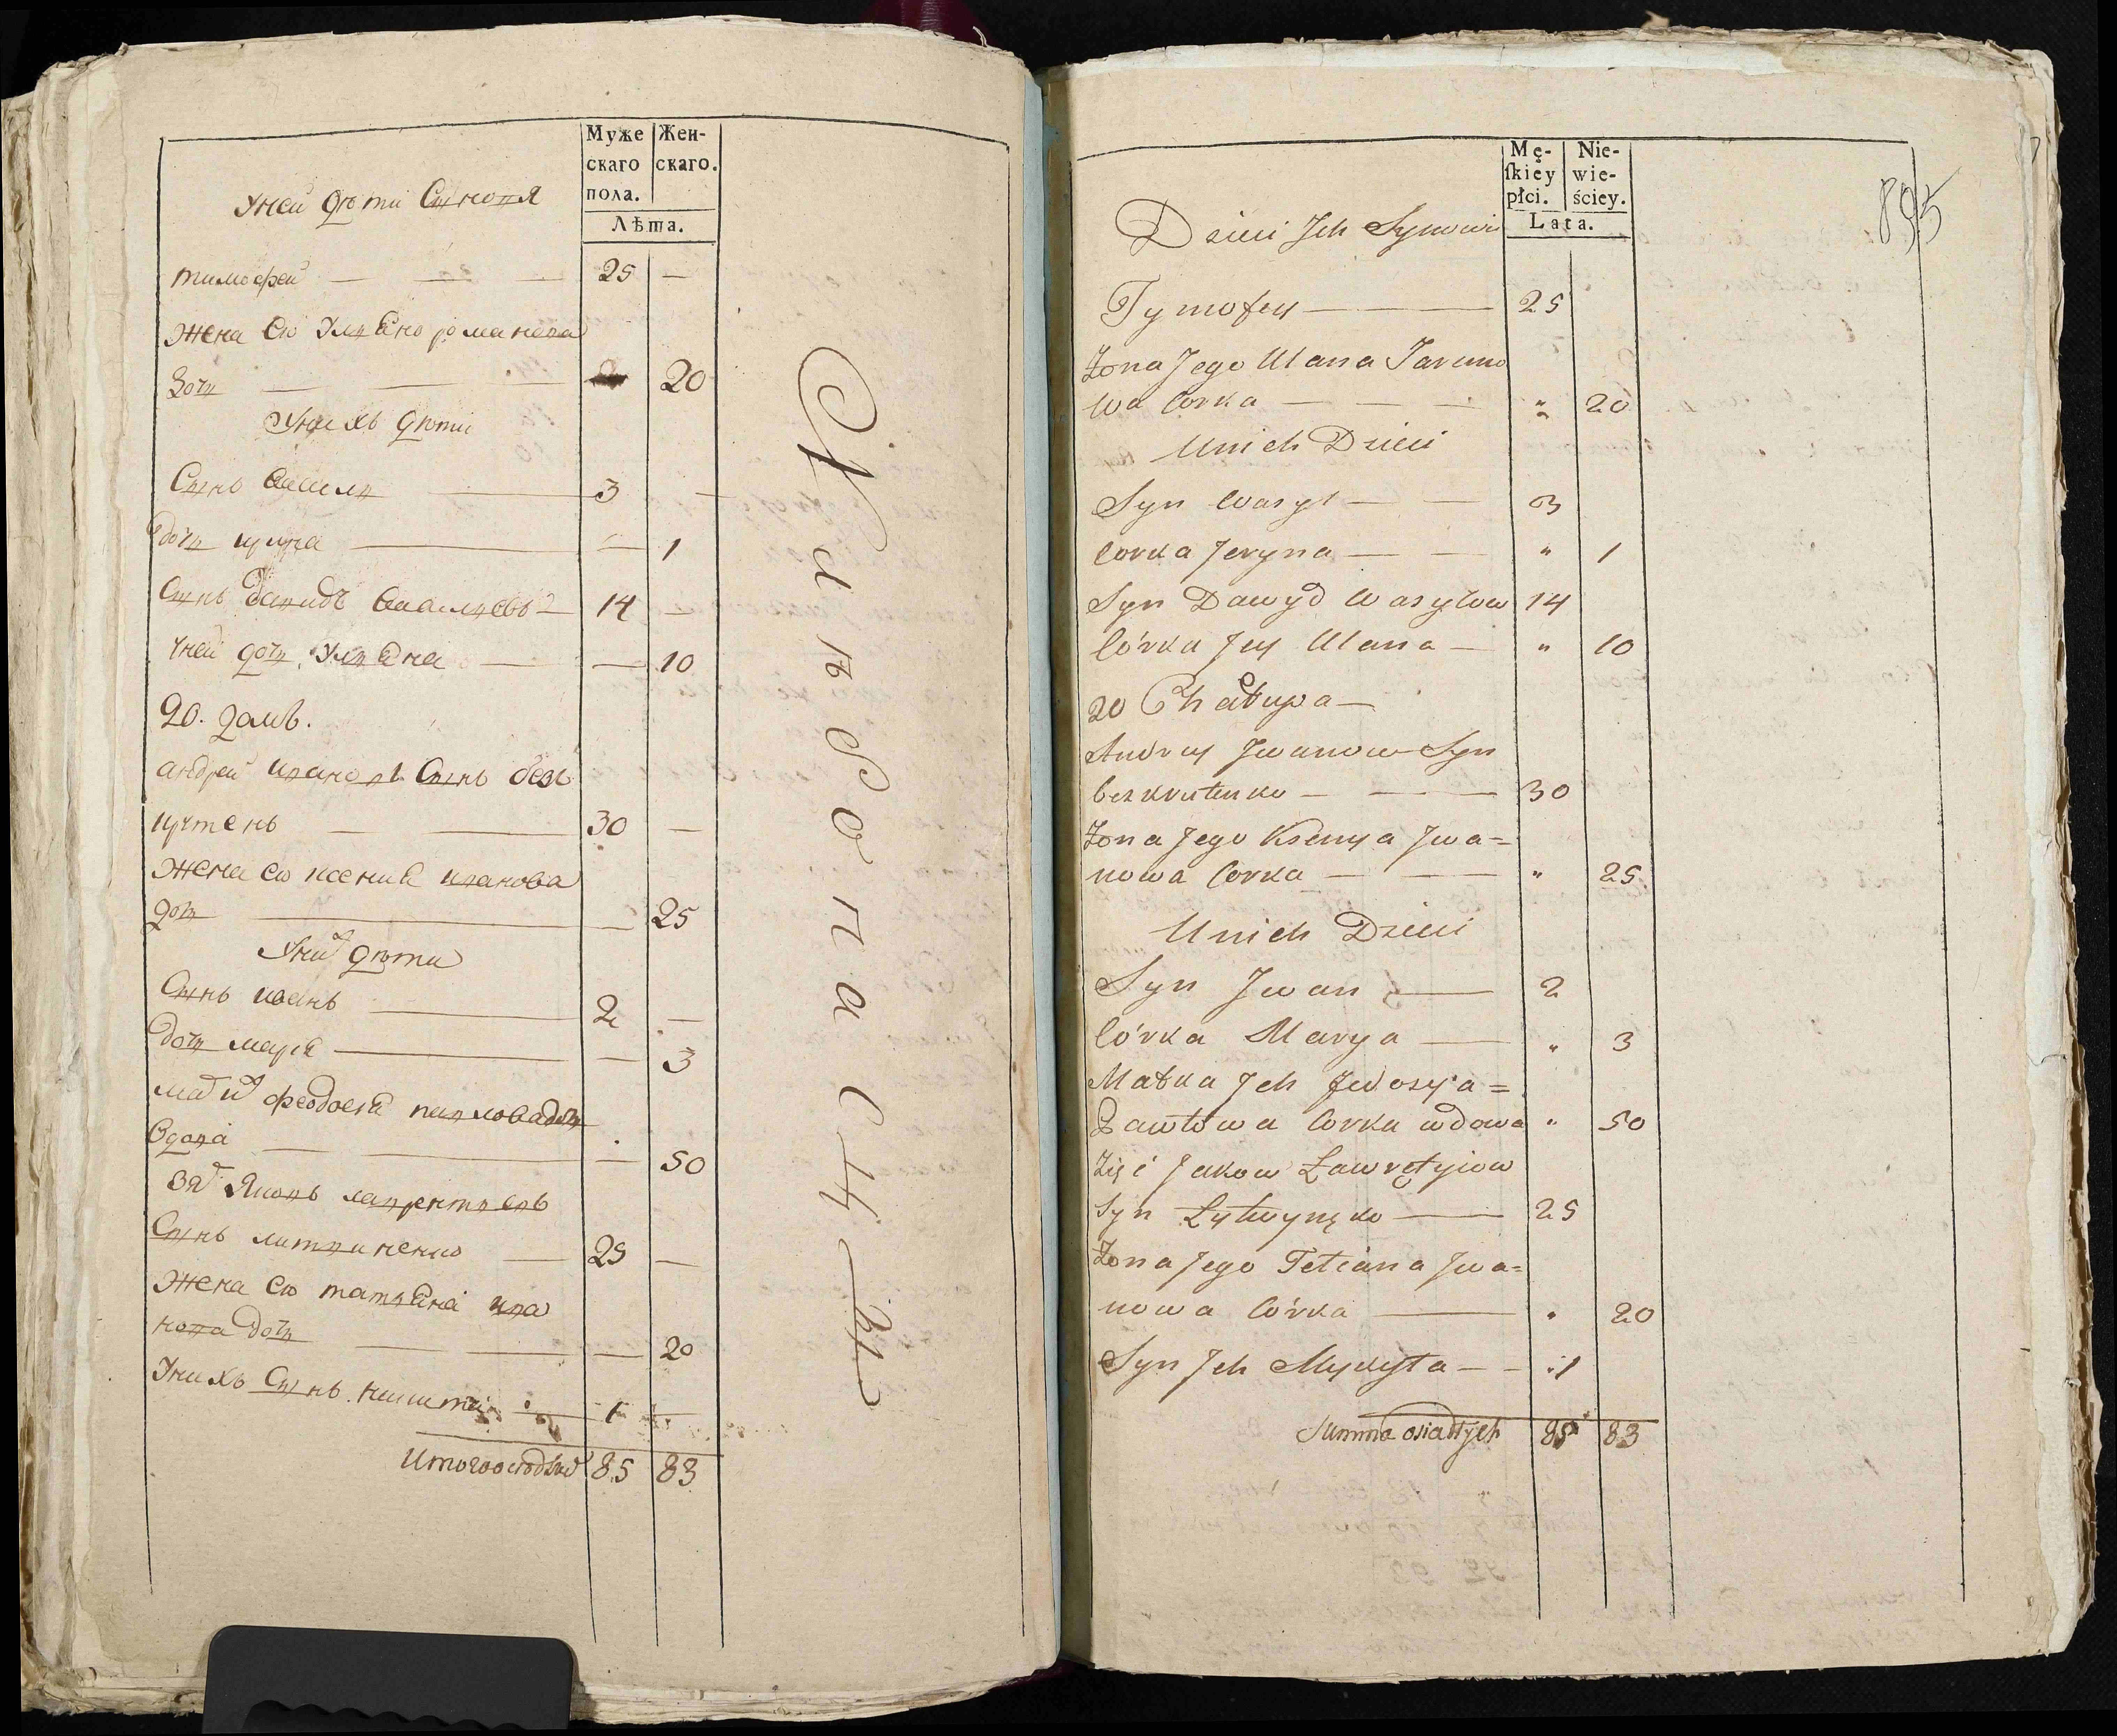 Муже Жен-
скаго скаго.
пола.
Лѣта.
Уней дѣти Сыновя
тимофей — — — 25 —
жена ево Улияно романова
дочь — — — 20
Уних дѣти
Сынь василь — 3 —
дочь ирина — — 1
Сынь давидъ василиевъ — 14 —
Уней дочь Улияна — — 10
20. домъ.
андрей иванов Сынь без
крутень — — 30 —
жена ево ксения иванова
дочь — — 25
Уних дѣти
Сынь иванъ — 2 —
дочь марія — — 3
мат их феодосія павловадочь
вдова — — — 50
зят Яковъ лаврентиевъ
Сынь литвиненко — 25 —
жена ево татияна ива
нова дочь — — — 20
Унихъ Сынь никита — 1 —
Итого 85 83
Mę- Nie-
skiey wie-
płci. ściey.
Lata.
895
Dzieci Jch Synowie
Tymofey — 25
Żona Jego Ulana
wa Corka — — — " 20
Unich Dzieci
Syn Wasyl — — 3
Corka Jeryna — — " 1
Syn Dawyd Wasylow 14
Córka Jey Ulana — " 10
20 Chałupa —
Andrey Jwanow Syn
bezkrutenko — — 30
Żona Jego Ksenya Jwa=
nowa Corka — — " 25
Unich Dzieci
Syn Jwan — 2
Córka Marya — " 3
Matka Jch Fedosya=
Pawłowa Corka wdowa " 50
Zięć Jakow Ławrętyiow
Syn Łytwynęko — 25
Żona Jego Tetiana Jwa=
nowa Córka — " 20
Syn Jch Mykyta — — 1
Summa osiadłych 85 83